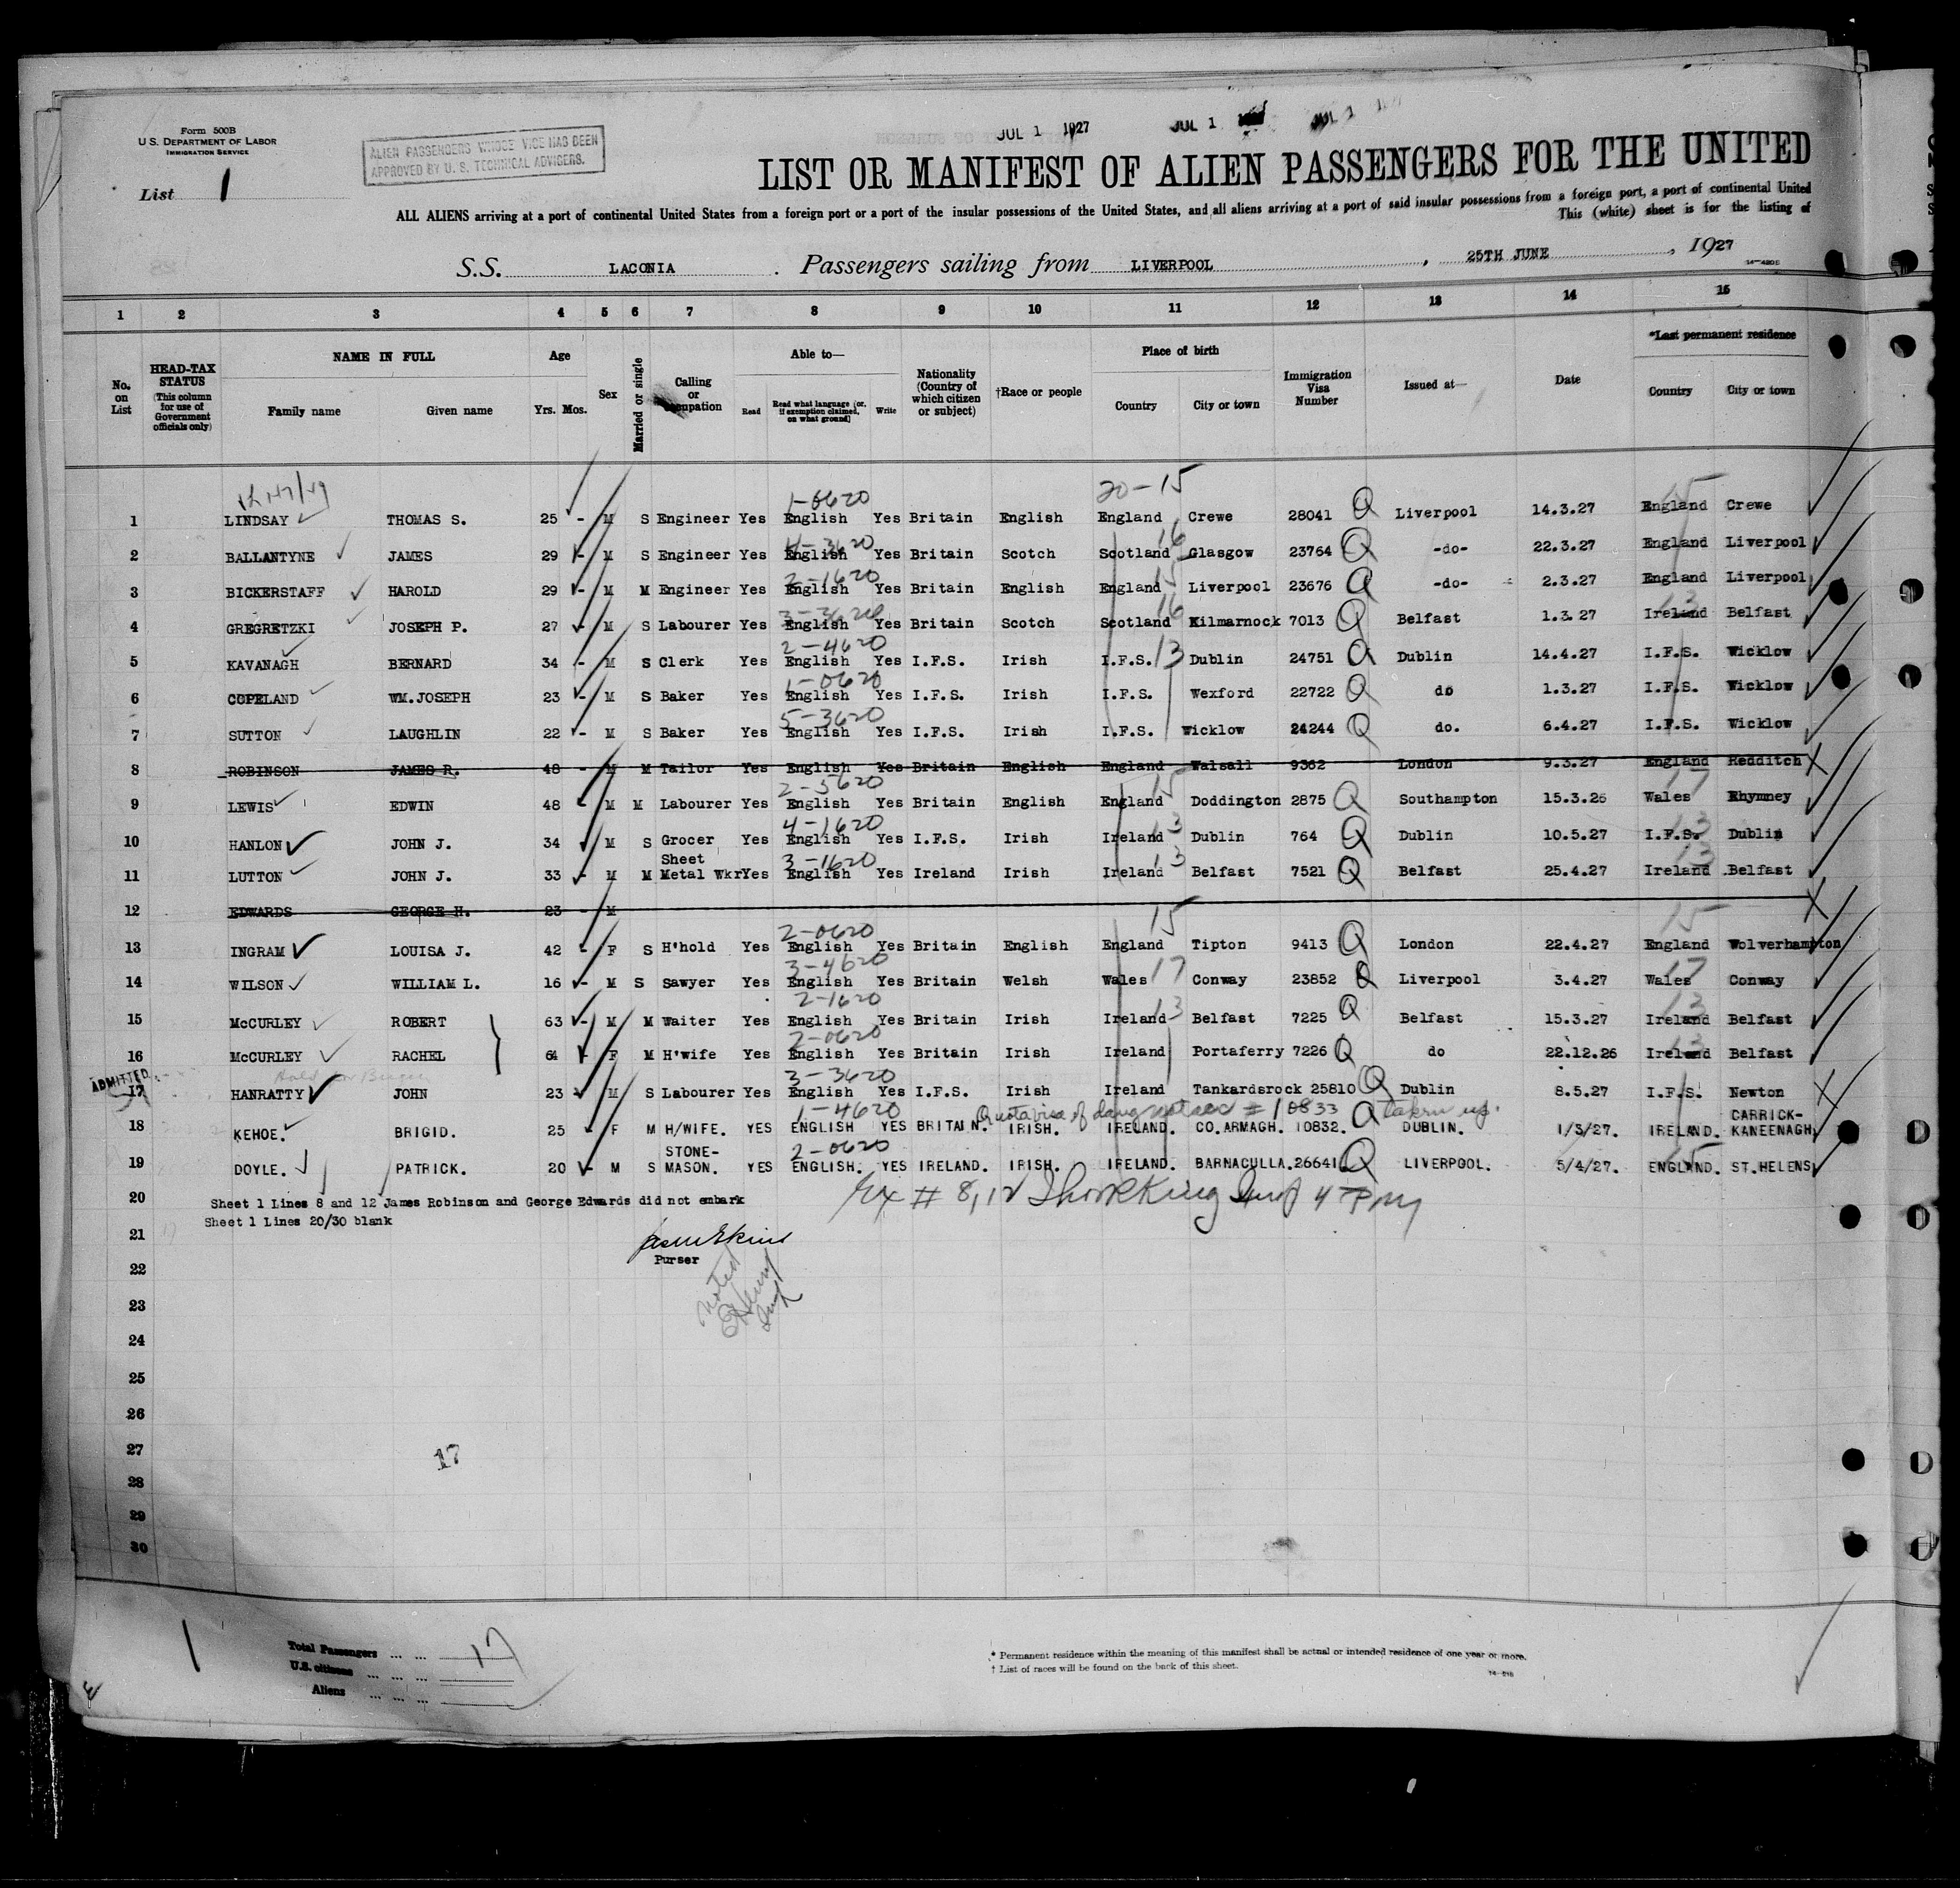 Form 500B
U.S. DEPARTMENT OF LABOR
IMMIGRATION SERVICE
ALIEN PASSENGERS WHOSE VICE HAS BEEN
APPROVED BY U. S. TECHNICAL ADVISERS.
JUL 1 1927 JUL 1 JUL 1
List 1
LIST OR MANIFEST OF ALIEN PASSENGERS FOR THE UNITED
ALL ALIENS arriving at a port of continental United States from a foreign port or a port of the insular possessions of the United States, and all aliens arriving at a port of said insular possessions from a foreign port, a port of continental United
This (white) sheet is for the listing of
S.S. LACONIA . Passengers sailing from LIVERPOOL , 25TH JUNE , 1927
1 2 3 4 5 6 7 8 9 10 11 12 13 14 15
No. on List HEAD-TAX STATUS (This column for use of Government officials only) NAME IN FULL Family name Given name Age Yrs. Mos. Sex Married or single Calling or occupation Able to— Read Read what language (or, if exemption claimed, on what ground) Write Nationality (Country of which citizen or subject) †Race or people Place of birth Country City or town Immigration Visa Number Issued at— Date *Last permanent residence Country City or town
1-0620 20-15 15
1 LINDSAY THOMAS S. 25 - M S Engineer Yes English Yes Britain English England Crewe 28041 Q Liverpool 14.3.27 England Crewe
4-3620 16
2 BALLANTYNE JAMES 29 - M S Engineer Yes English Yes Britain Scotch Scotland Glasgow 23764 Q -do- 22.3.27 England Liverpool
2-1620 15
3 BICKERSTAFF HAROLD 29 - M M Engineer Yes English Yes Britain English England Liverpool 23676 Q -do- 2.3.27 England Liverpool
3-3620 16 13
4 GREGRETZKI JOSEPH P. 27 - M S Labourer Yes English Yes Britain Scotch Scotland Kilmarnock 7013 Q Belfast 1.3.27 Ireland Belfast
2-4620
5 KAVANAGH BERNARD 34 - M S Clerk Yes English Yes I.F.S. Irish I.F.S. 13 Dublin 24751 Q Dublin 14.4.27 I.F.S. Wicklow
1-0620
6 COPELAND WM.JOSEPH 23 - M S Baker Yes English Yes I.F.S. Irish I.F.S. Wexford 22722 Q do 1.3.27 I.F.S. Wicklow
5-3620
7 SUTTON LAUGHLIN 22 - M S Baker Yes English Yes I.F.S. Irish I.F.S. Wicklow 24244 Q do. 6.4.27 I.F.S. Wicklow
8 ROBINSON JAMES R. 48 - M M Tailor Yes English Yes Britain English England Walsall 9362 London 9.3.27 England Redditch
2-5620 15 17
9 LEWIS EDWIN 48 - M M Labourer Yes English Yes Britain English England Doddington 2875 Q Southampton 15.3.26 Wales Rhymney
4-1620 13 13
10 HANLON JOHN J. 34 M S Grocer Yes English Yes I.F.S. Irish Ireland Dublin 764 Q Dublin 10.5.27 I.F.S. Dublin
3-1620 13 13
11 LUTTON JOHN J. 33 - M M Sheet Metal Wkr Yes English Yes Ireland Irish Ireland Belfast 7521 Q Belfast 25.4.27 Ireland Belfast
12 EDWARDS GEORGE H. 23 - M
2-0620 15 15
13 INGRAM LOUISA J. 42 - F S H'hold Yes English Yes Britain English England Tipton 9413 Q London 22.4.27 England Wolverhampton
3-4620 17
14 WILSON WILLIAM L. 16 - M S Sawyer Yes English Yes Britain Welsh Wales 17 Conway 23852 Q Liverpool 3.4.27 Wales Conway
2-1620 13
15 McCURLEY ROBERT 63 - M M Waiter Yes English Yes Britain Irish Ireland 13 Belfast 7225 Q Belfast 15.3.27 Ireland Belfast
2-0620 13
16 McCURLEY RACHEL 64 - F M H'wife Yes English Yes Britain Irish Ireland Portaferry 7226 Q do 22.12.26 Ireland Belfast
ADMITTED 3-3620
17 HANRATTY JOHN 23 - M S Labourer Yes English Yes I.F.S. Irish Ireland Tankardsrock 25810 Q Dublin 8.5.27 I.F.S. Newton
1-4620 Quota visa of # 10833 taken up.
18 KEHOE. BRIGID. 25 F M H/WIFE. YES ENGLISH YES BRITAIN. IRISH. IRELAND. CO.ARMAGH. 10832. Q DUBLIN. 1/3/27. IRELAND. CARRICK-KANEENAGH.
2-0620 15
19 DOYLE. PATRICK. 20 - M S STONE-MASON. YES ENGLISH. YES IRELAND. IRISH. IRELAND. BARNACULLA. 26641 Q LIVERPOOL. 5/4/27. ENGLAND. ST.HELENS
20 Sheet 1 Lines 8 and 12 James Robinson and George Edwards did not embark
Sheet 1 Lines 20/30 blank
21
Purser
22
Noted
23
24
25
26
27
17
28
29
30
1
Total Passengers ... ... 17
U.S. citizens ... ... ...
Aliens ... ... ...
* Permanent residence within the meaning of this manifest shall be actual or intended residence of one year or more.
† List of races will be found on the back of this sheet.